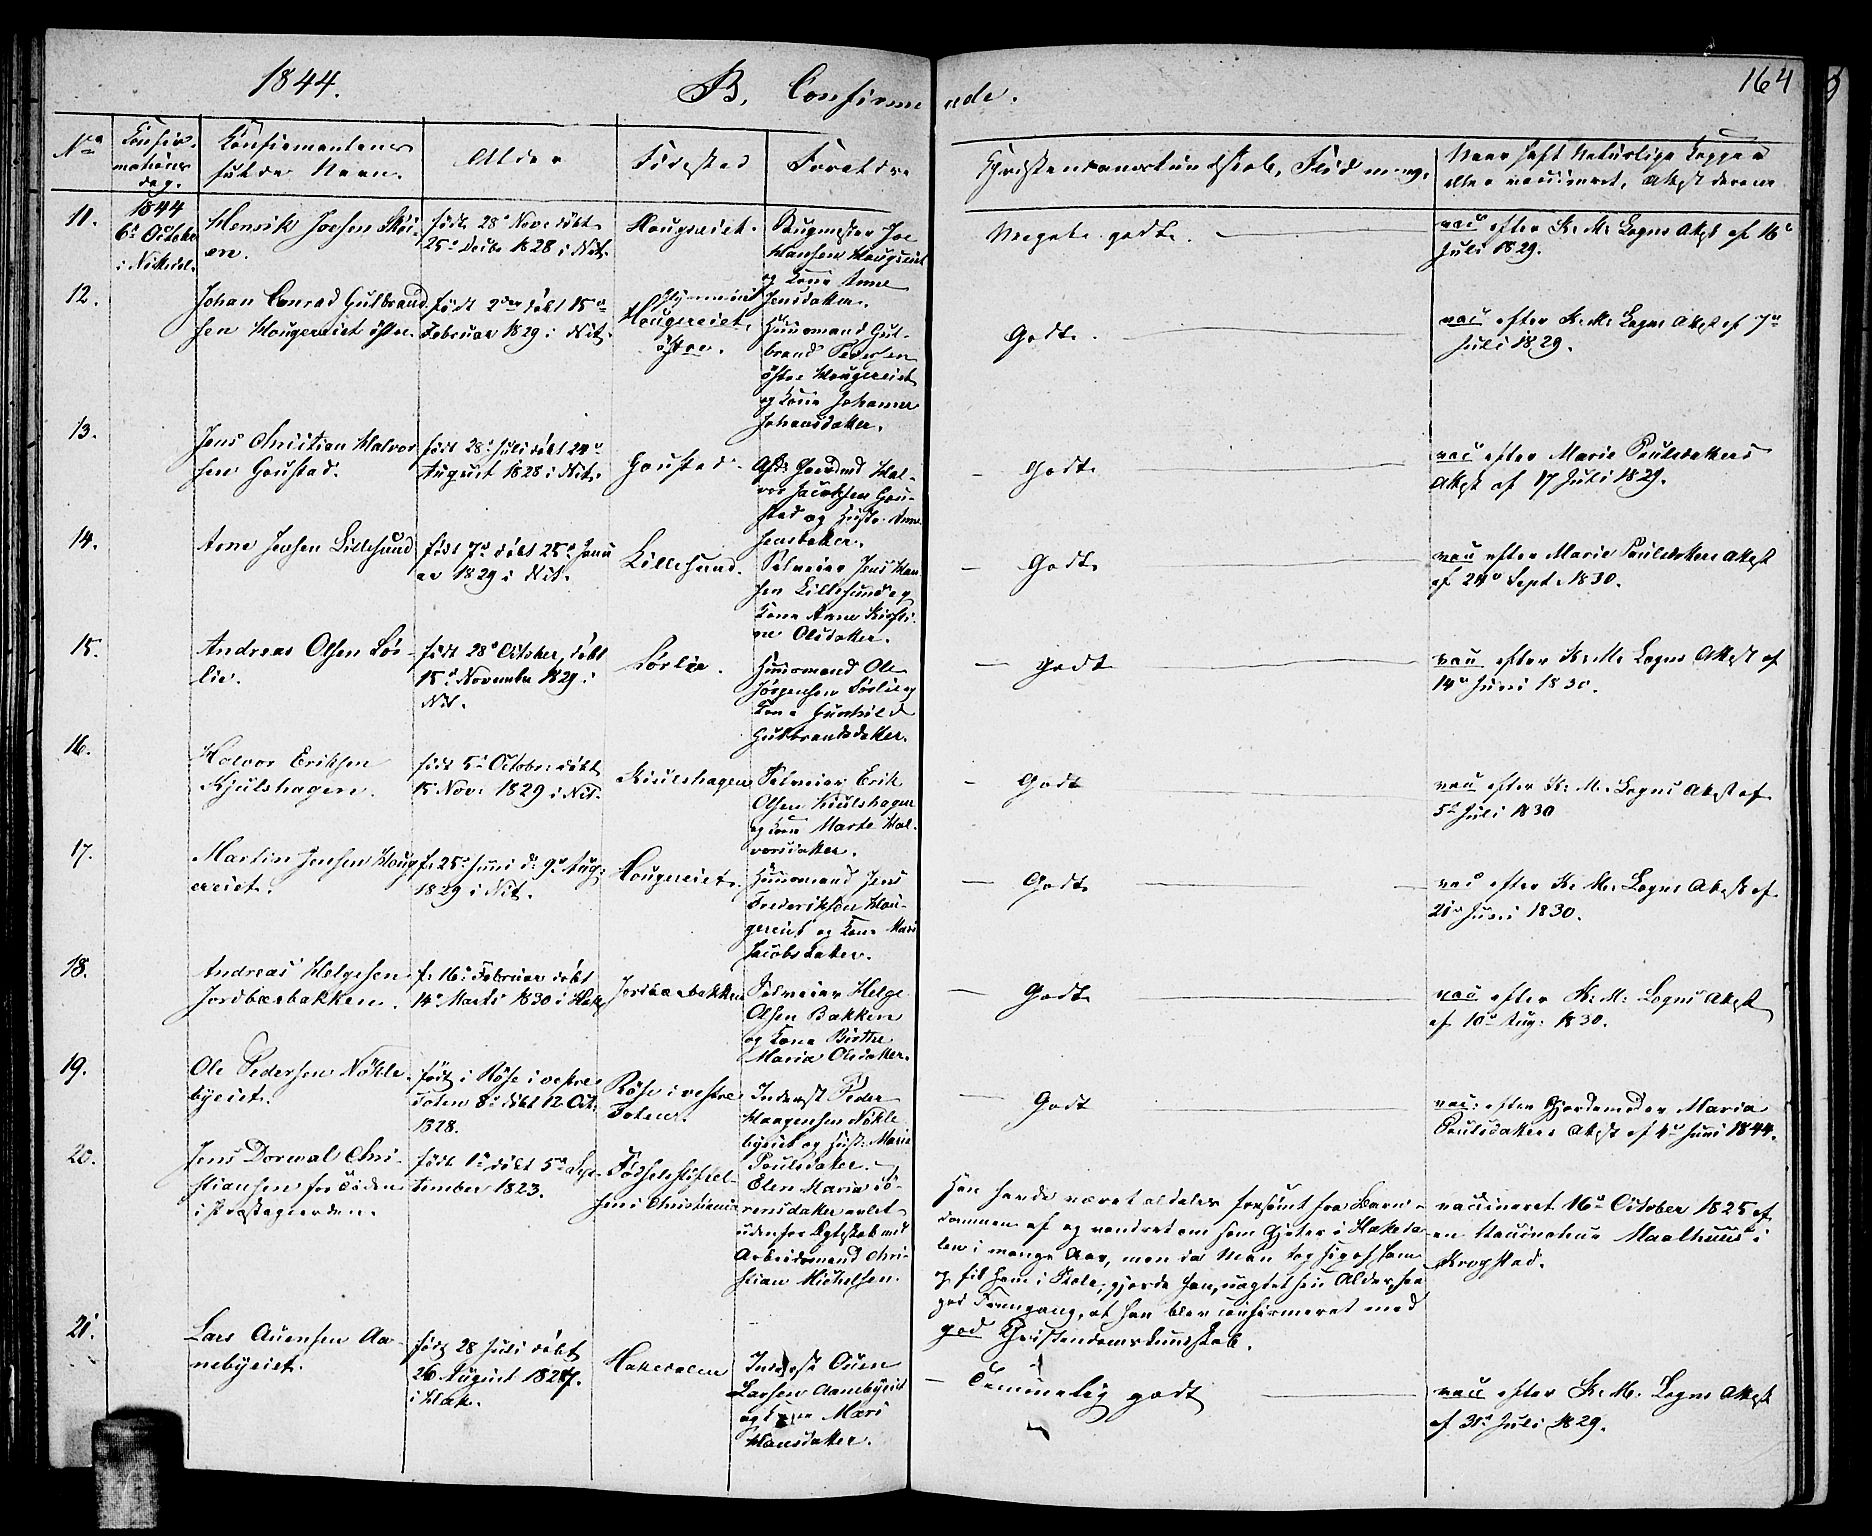 1844.
B. Confirmerede.
164
No
Confir-
mations
dag.
Confirmantens
fulde Navn.
Alder
Födested
Foreldre
Christendomskundskab, Flid m. m.
Naar haft Naturlige Kopper
eller vaccineret, Attest derom
11.
1844
6te October
i Nittedal.
Henrik Joesen Sköi-
en.
födt 28de Nov. döbt
25de Decbr 1828 i Nit.
Hougereiet.
Joe
Hansen Hougereiet
og Kone Anne
Jensdatter.
Meget godt.
vac efter K. M. Logns Attest af 16de
Juli 1829.
12.
Johan Conrad Gulbrand
sen Hougereiet östre.
födt 2den döbt 15de
Februar 1829 i Nit.
Hougereiet,
östre.
Huusmand Gul-
brand Pedersen
östre Hougereiet
og Kone Johanne
Johansdatter.
Godt.
vac efter K. M. Logns Attest af 7de
Juli 1829.
13.
Jens Christian Halvor
sen Goustad.
födt 28de Juli döbt 24de
August 1828 i Nit.
Goustad.
Hal-
vor Jacobsen Gou-
stad og Hustr. Anne
Jensdatter.
- Godt.
vac efter Marie Poulsdatters
Attest af 17 Juli 1829.
14.
Arne Jensen Lillesund
födt 7de döbt 25de Janu
ar 1829 i Nit.
Lillesund.
Selveier Jens Han
sen Lillesund og
Kone Anne Kirsti-
ne Olsdatter.
- Godt.
vac efter Marie Poulsdatters Attest
af 24de Sept. 1830.
15.
Andreas Olsen Sör-
lie.
födt 28de October, döbt
15de November 1829 i
Nit.
Sörlie.
Huusmand Ole
Jörgensen Sörlie og
Kone Gunhild
Gulbrandsdatter.
- godt
vac efter K. M. Logns Attest af
14de Juni 1830.
16.
Halvor Eriksen
Kjulshagen.
födt 5de October döbt
15 Nov. 1829 i Nit.
Kiulshagen
Selveier Erik
Olsen Kiulshagen
og Kone Marte Hal-
vorsdatter.
- Godt
vac efter K. M. Logns Attest af
5te Juli 1830
17.
Martin Jensen Houg
ereiet.
f. 25de Juni d. 9de Aug.
1829 i Nit.
Hougereiet.
Huusmand Jens
Frederiksen Hou-
gereiet og Kone Mari
Jacobsdatter.
- Godt
vac efter K. M. Logns Attest af
21de Juni 1830.
18.
Andreas Helgesen
Jordbærbakken.
f. 16de Februar döbt
14de Marts 1830 i Hak.
Jordbærbakken
Selveier Helge
Olsen Bakken
og Kone Birthe
Maria Olsdatter.
- Godt
vac efter K. M. Logns Attest
af 10de Aug. 1830.
19.
Ole Pedersen Nöhle
byeiet.
födt i Röse i vestre
Toten 8de döbt 12 Oct.
1828.
Röse i vestre
Toten.
Inderst Peder
Haagensen Nöhle
byeiet og Hust. Marie
Poulsdatter.
- Godt
vac. efter Gjordemoder Maria
Poulsdatters Attest af 4de Juni 1844.
20.
Jens Dorwal Chri-
stiansen for Tiden
i Præstegaarden.
födt 1de döbt 5te Sep-
tember 1823.
Födselsstiftel-
sen i Christiania
Elen Maria Sö-
rensdatter avlet
udenfor Ægteskab med
Arbeidsmand Chri-
stian Michelsen.
Han havde været aldeles forsömt fra Barn-
dommen af og vandret om som Gjeter i Hakeda-
len i mange Aar, men da Man tog sig af ham
og fik ham i Skole, gjorde han, uagtet sin Alder, saa
god Fremgang, at han blev confirmeret med
god Christendomskundskab.
vaccineret 16de October 1825 af
en Vaccinateur Maalhuus i
Krogstad.
21.
Lars Auensen Aa-
nebyeiet.
födt 28 Juli döbt
26 August 1827.
i Hak.
Hakedalen
Inderst Ouen
Larsen Aanebyeiet
og Kone Mari
Hansdatter.
- Temmelig godt
vac efter K. M. Logns Attest
af 31de Juli 1829.